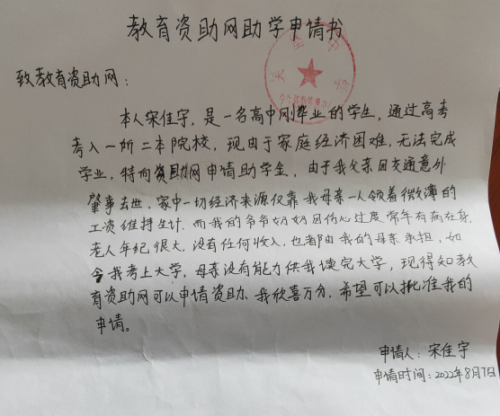 教育资助网助学申请书
致教育资助网：
本人宋佳宇，是一名高中刚毕业的学生，通过高考
考入一所二本院校，现由于家庭经济困难，无法完成
学业，特向资助网申请助学金，由于我父亲因交通意外
肇事去世，家中一切经济来源仅靠我母亲一人领着微薄的
工资维持生计，而我的爷爷奶奶因伤心过度常年有病在身，
老人年纪很大，没有任何收入，也都由我的母亲承担，如
今我考上大学，母亲没有能力供我读完大学，现得知教
育资助网可以申请资助，我欣喜万分，希望可以批准我的
申请。
申请人：宋佳宇
申请时间：2022年8月7日